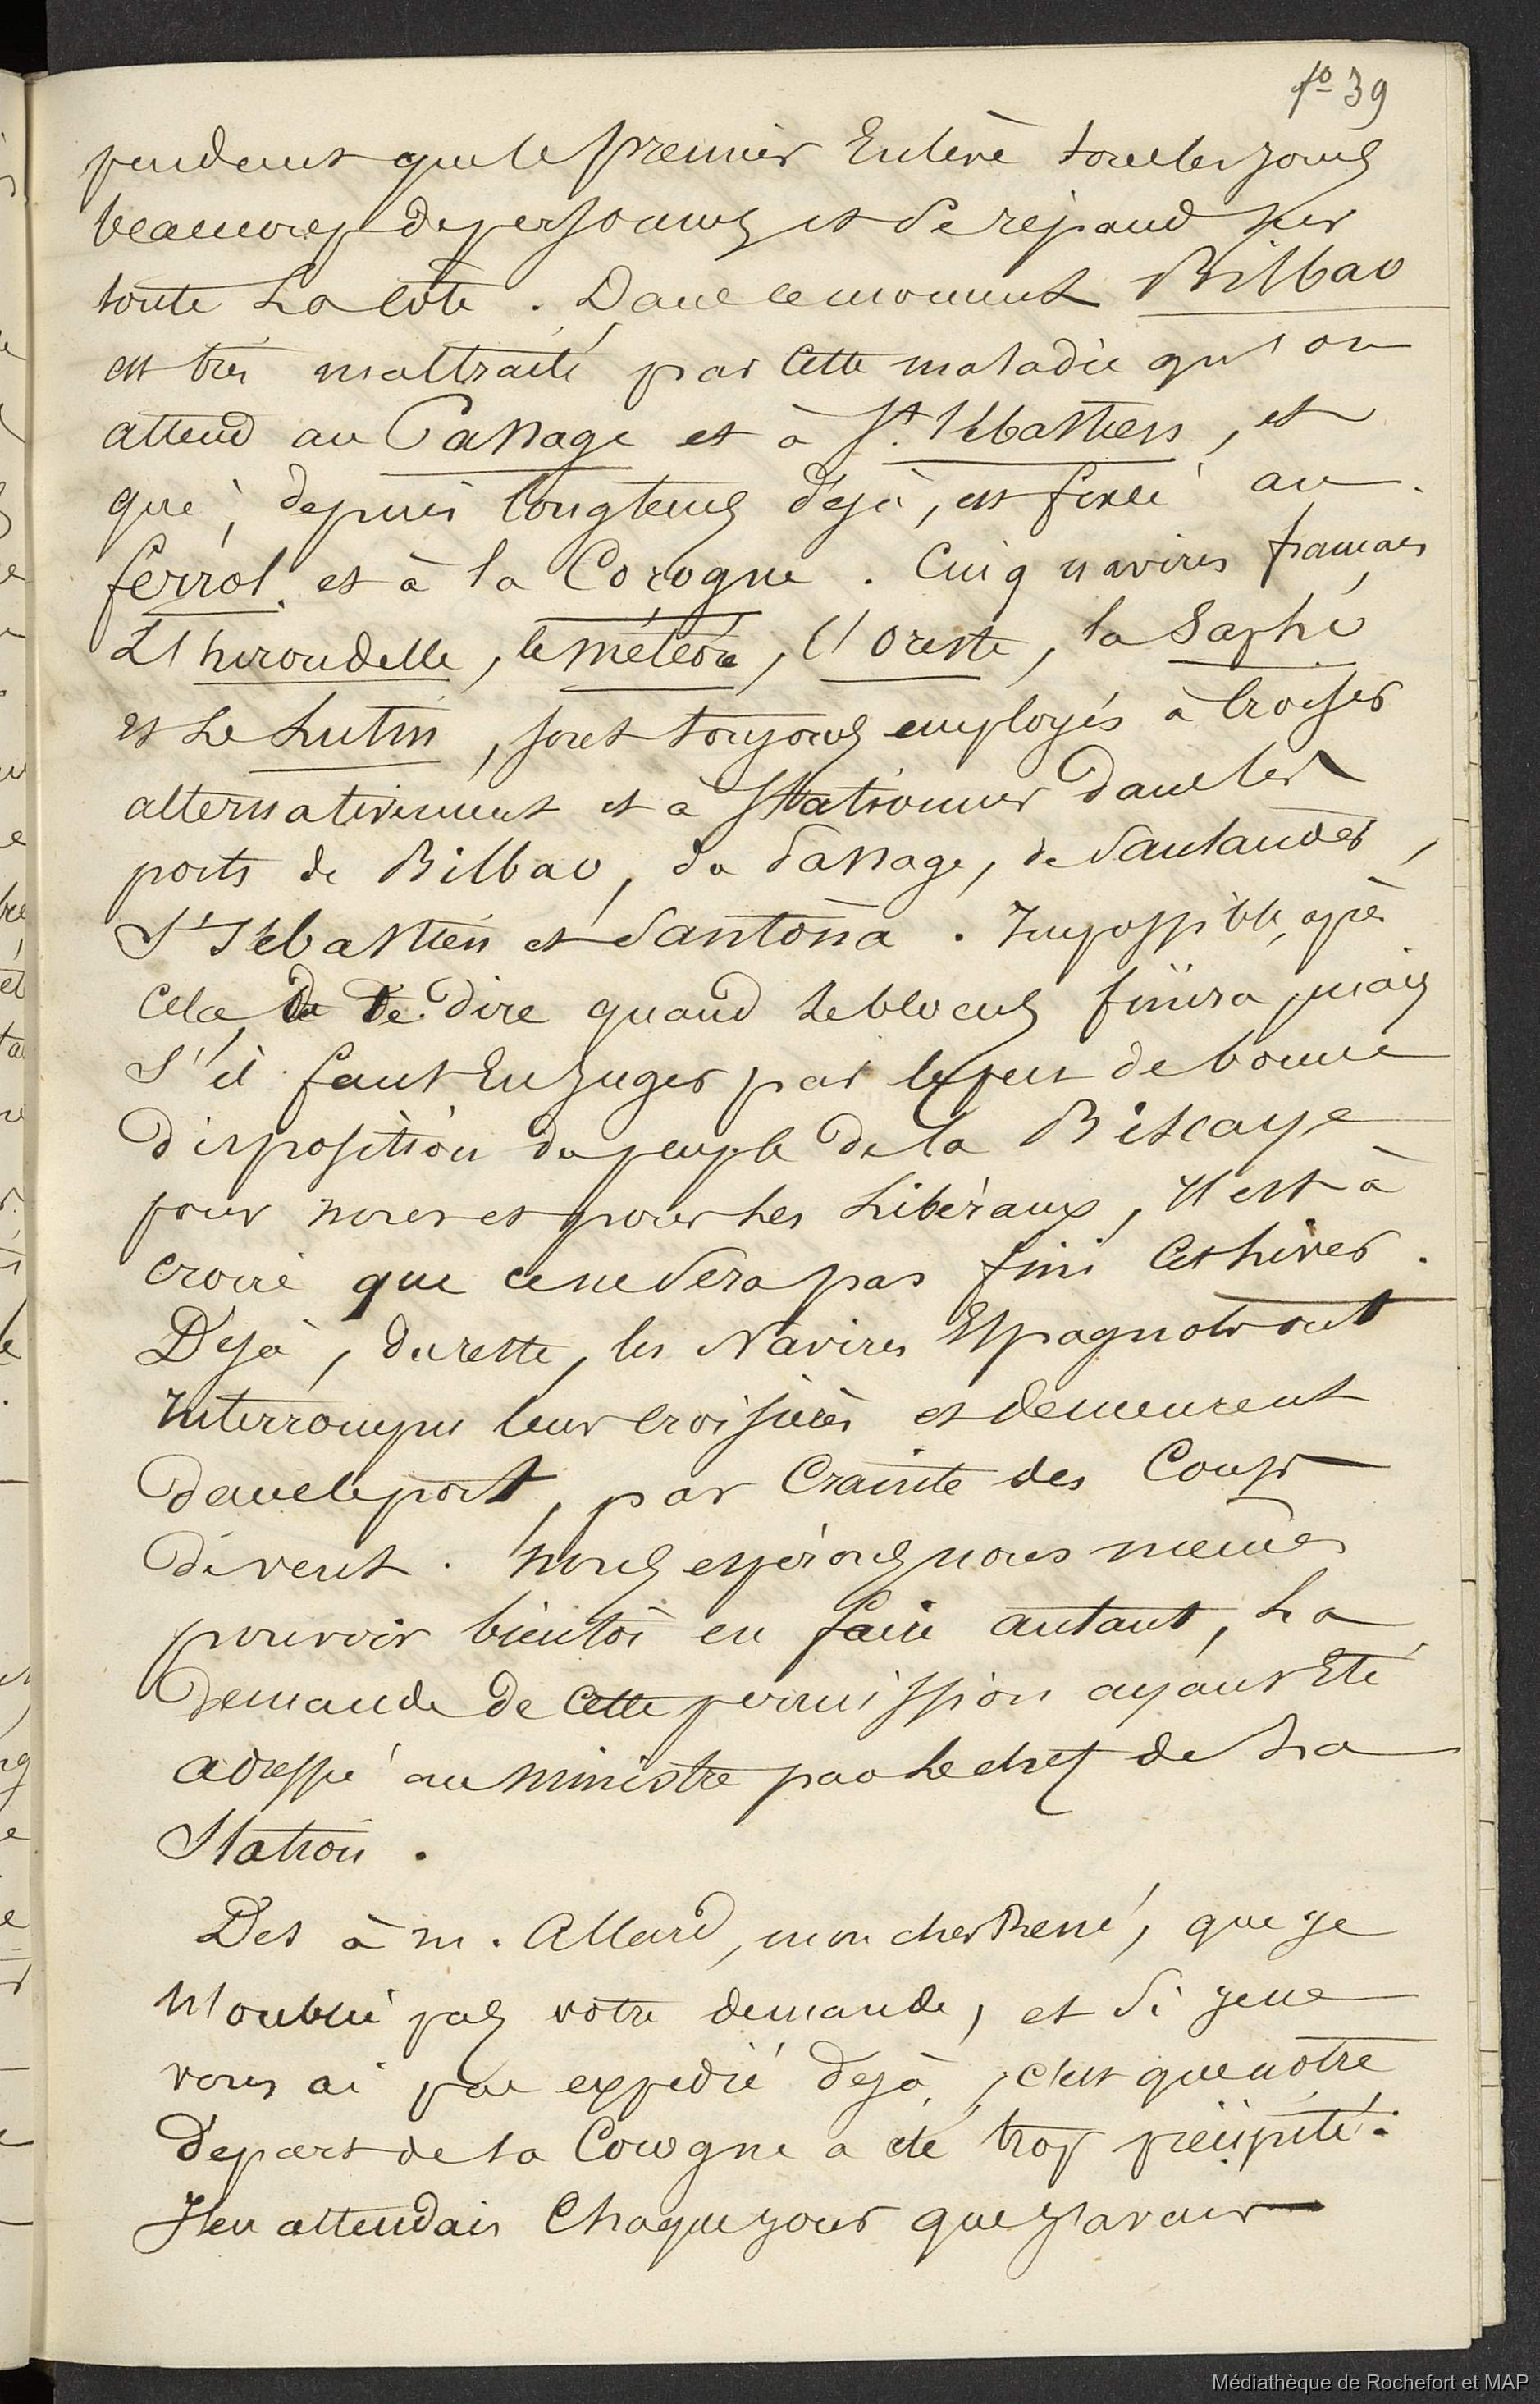 fo 39
pendant que le premier Enlève tous les jours
beaucoup de personnes et se répand sur
toute La côte. Dans ce moment Bilbao
est très maltraité par cette maladie qu'on
attend au Passage et à St. Sébastien, et
qui, depuis longtems déjà, est fixée au
ferrol et à la Corogne. Cinq navires français
L'hirondelle, le météore, l'oreste, la Sapho
et Le Lutin, sont toujours employés à croiser
alternativement et à Stationner dans les
ports de Bilbao, du Passage, de Santander,
St Sébastien et Santôna. Impossible, après
cela, de dire quand le blocus finira, mais
S'il faut En juger par le peu de bonne
disposition du peuple de la Biscaye
pour nous et pour les Libéraux, Il est à
croire que ce ne sera pas fini cet hiver.
Déjà, du reste, les Navires Espagnols ont
Interrompu leur croisière et demeurent
dans le port, par Crainte des Coups
de vent. Nous espérons nous mêmes
pouvoir bientôt en faire autant, La
Demande de cette permission ayant Eté
adressé au ministre par le chef de La
Station.
Dis à m. Allard, mon cher René, que je
N'oublie pas votre demande, et Si je ne
vous ai pas expédié déjà, c'est que notre
départ de la Corogne a été trop précipité.
J'en attendais Chaque jour que j'avais